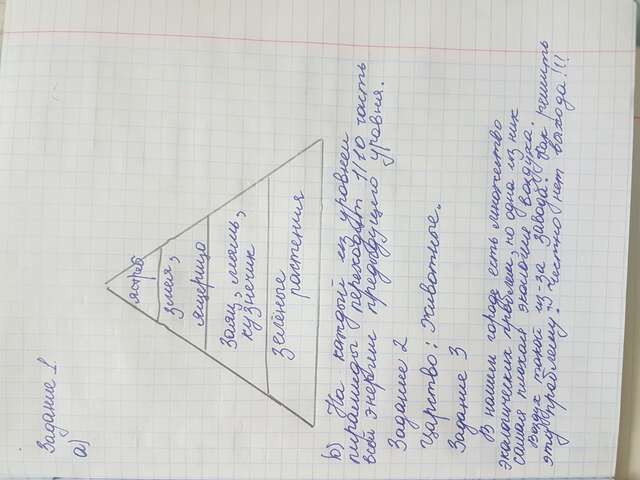 Задание 1
а)
ястреб
Змея,
ящерица
Заяц, мышь,
кузнечик
Зелёные
растения
b) На каждый из уровней
пирамиды переходит 1/10 часть
всей энергии предыдущего уровня.
Задание 2
Царство: Животные.
Задание 3
В нашем городе есть множество
экологических проблем, но одна из них
самая плохая экология воздуха.
Воздух такой из-за завода. Как решить
эту проблему? Честно нет выхода!!!